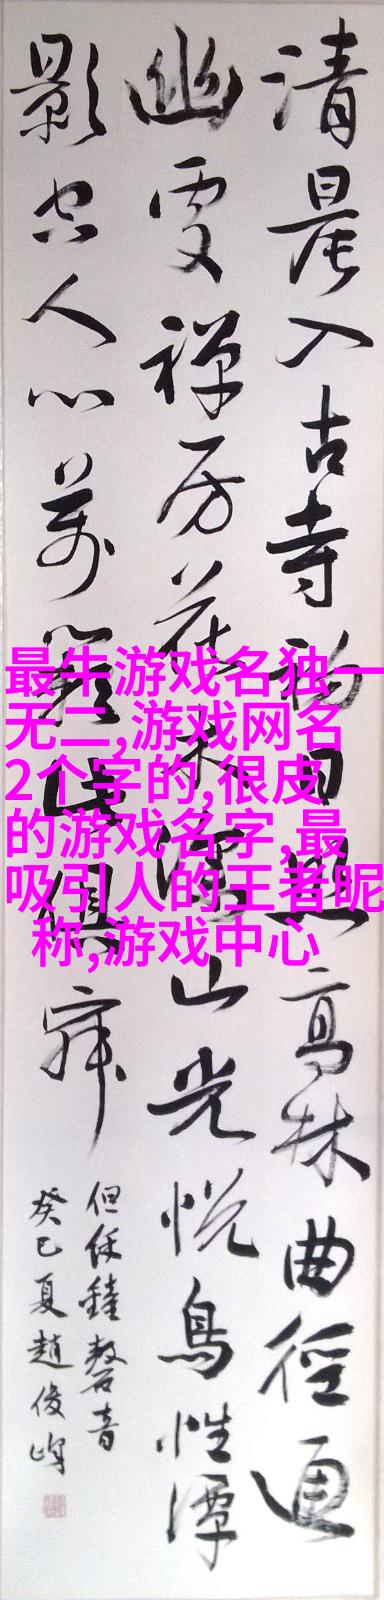 清晨入古寺初日照高林曲徑通
幽處禅房花木深山光悦鳥性潭
影空人心萬籟此俱寂
但餘鐘磬音
癸巳夏趙俊峰
最牛游戏名独一
无二,游戏网名
2个字的,很皮
的游戏名字,最
吸引人的王者昵
称,游戏中心